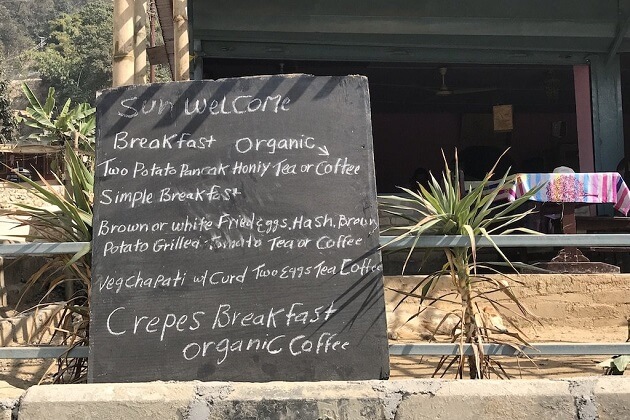 Sun Welcome
Breakfast Organic
Two Potato Pancak Honiy Tea or Coffee
Simple Breakfast
Brown or white Fried Eggs. Hash. Brown
Potato Grilled Tomatto Tea or Coffee
Veg chapati w/ Curd Two Eggs Tea Coffee
Crepes Breakfast
organic Coffee